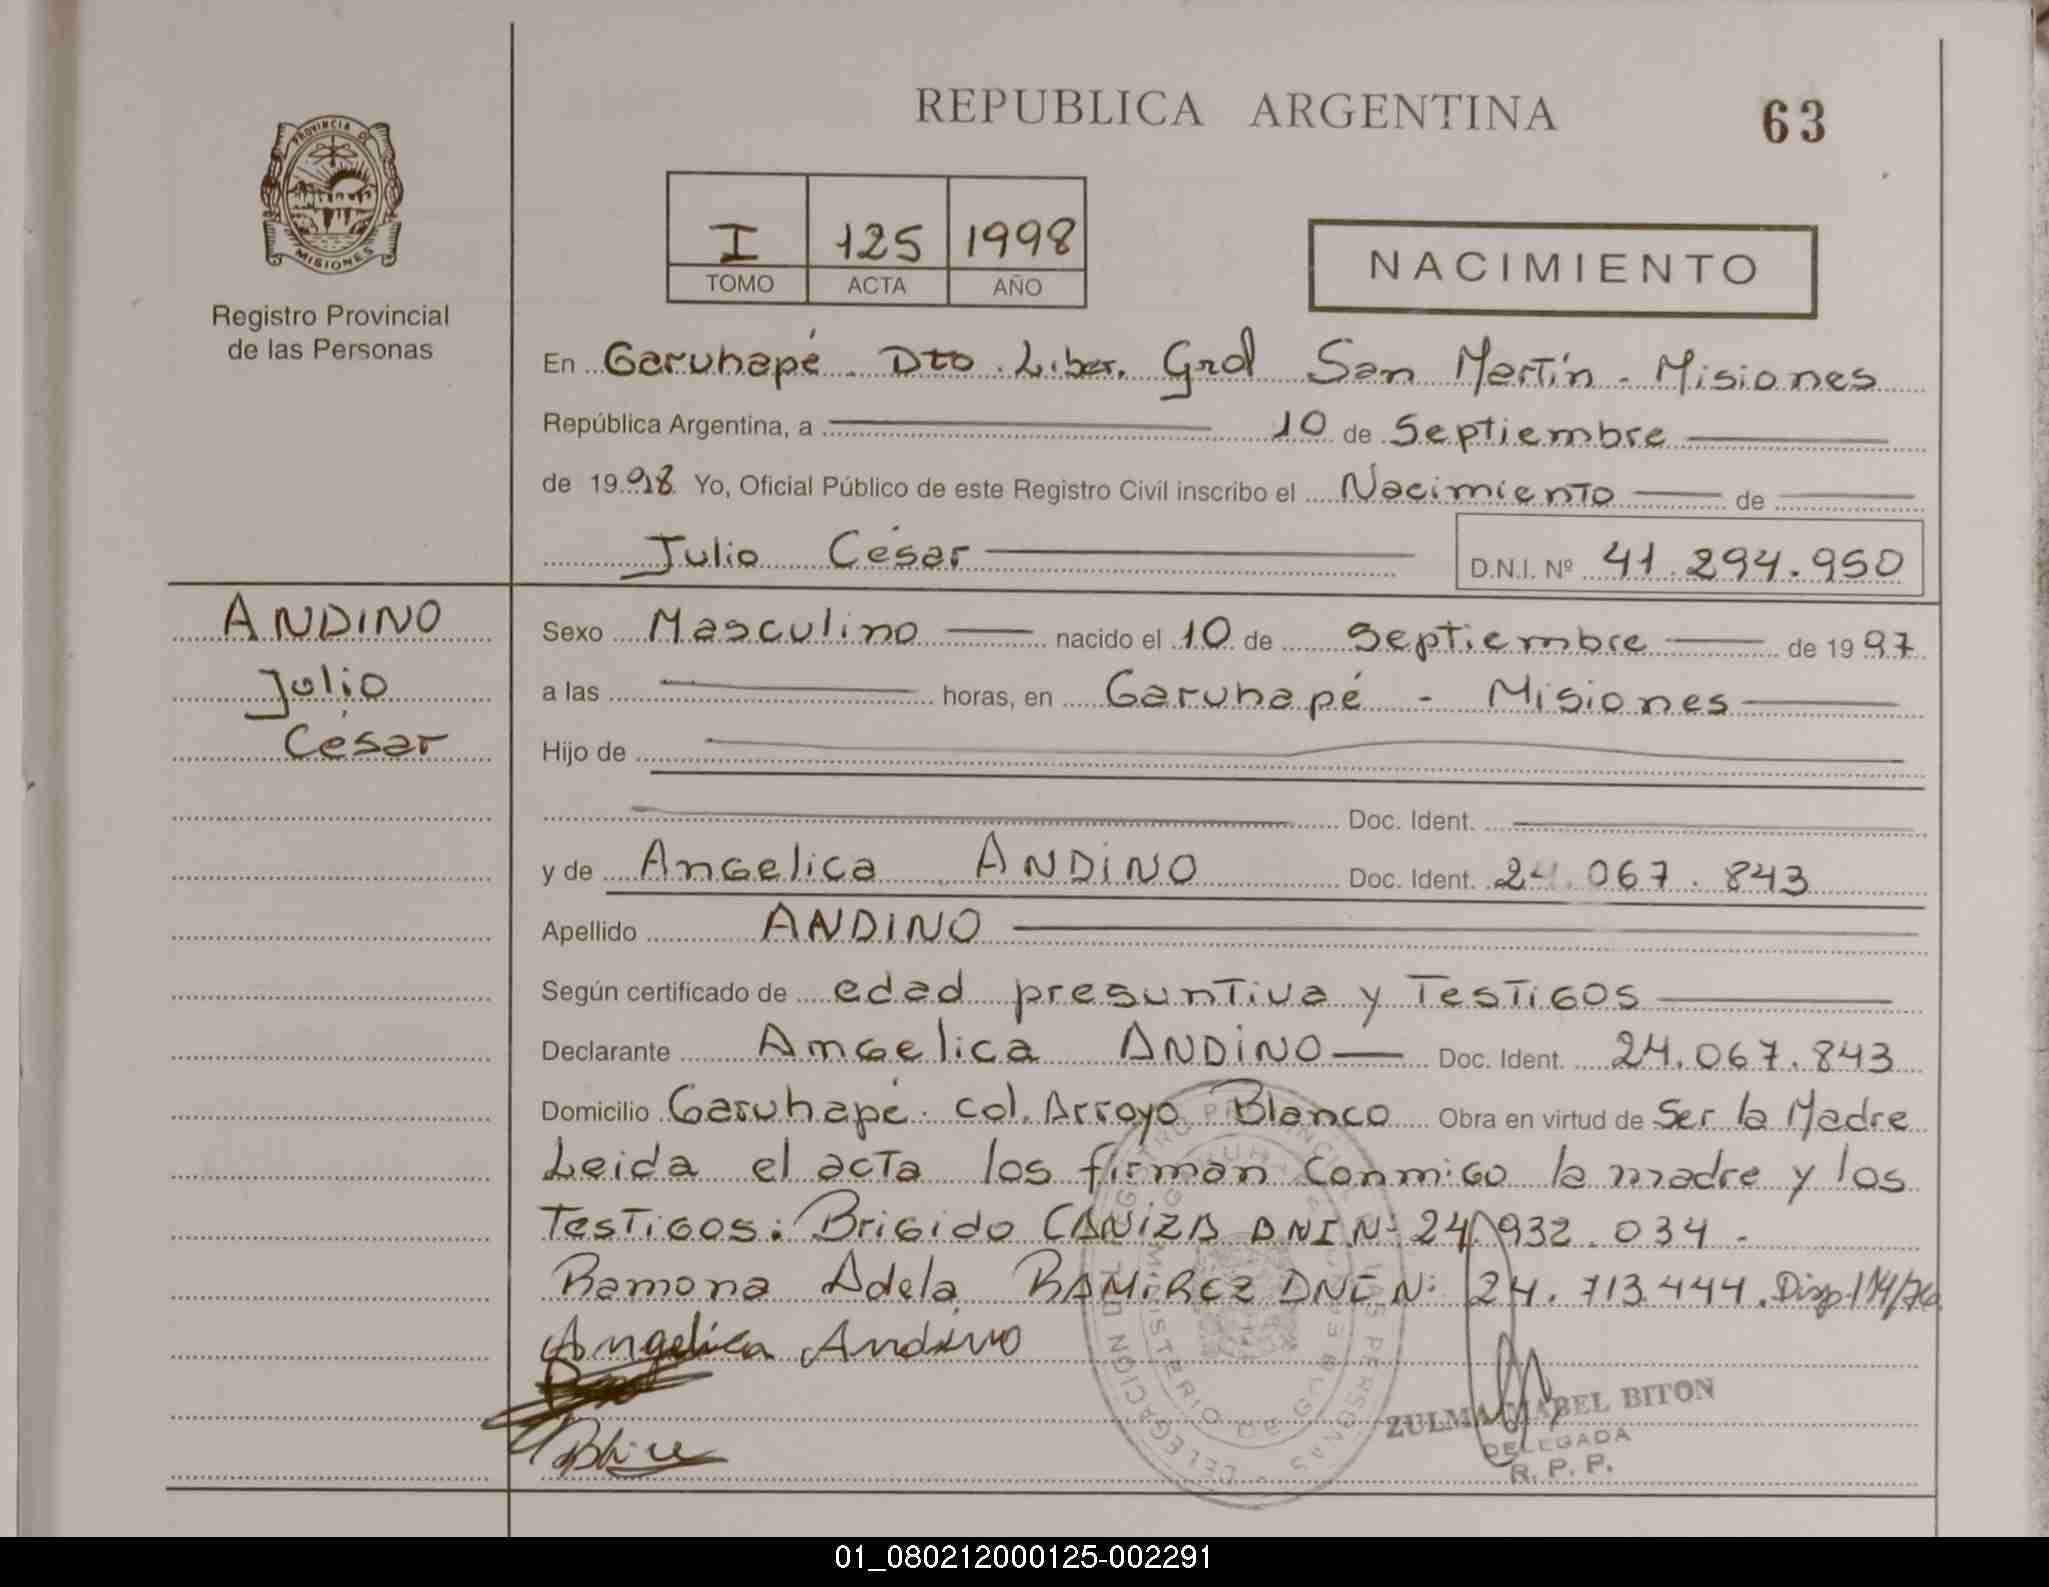 REPUBLICA ARGENTINA
63
PROVINCIA DE
MISIONES
Registro Provincial
de las Personas
I 125 1998
TOMO ACTA AÑO
NACIMIENTO
En Garuhapé. Dto. Liber. Gral San Martín - Misiones
República Argentina, a 10 de Septiembre
de 1998 Yo, Oficial Público de este Registro Civil inscribo el Nacimiento de
Julio César D.N.I. Nº 41.294.950
ANDINO
Julio
César
Sexo Masculino nacido el 10 de Septiembre de 1997
a las horas, en Garuhapé - Misiones
Hijo de
Doc. Ident.
y de Angelica ANDINO Doc. Ident. 24.067.843
Apellido ANDINO
Según certificado de edad presuntiva y Testigos
Declarante Angelica ANDINO Doc. Ident. 24.067.843
Domicilio Garuhapé. Col. Arroyo Blanco Obra en virtud de Ser la Madre
Leida el acta los firman conmigo la madre y los
Testigos: Brigido CANIZA DNI Nº 24.932.034.
Ramona Adela RAMIREZ DNI N: 24.713.444.
Angelica Andino
ZULMA MABEL BITON
DELEGADA
R. P. P.
01_080212000125-002291